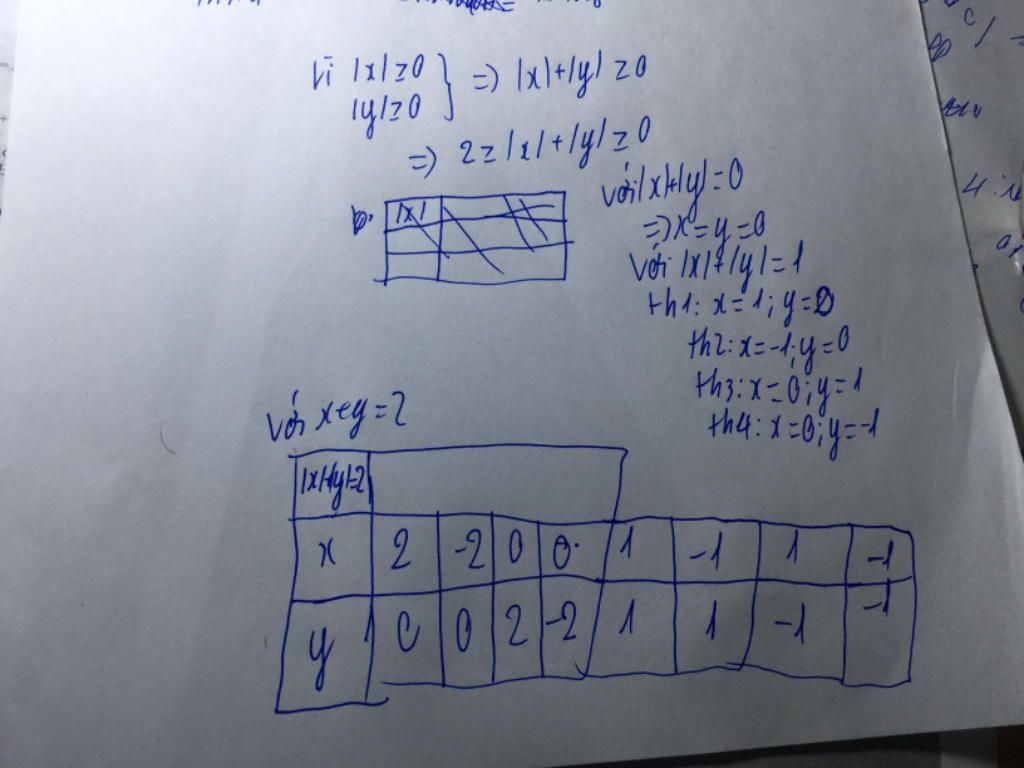 Vì |x| ≥ 0
|y| ≥ 0 } => |x| + |y| ≥ 0
=> 2 ≥ |x| + |y| ≥ 0
với |x|+|y| = 0
=> x = y = 0
Với |x| + |y| = 1
th1: x = 1; y = 0
th2: x = -1; y = 0
th3: x = 0; y = 1
th4: x = 0; y = -1
|x|
với x+y = 2
|x|+|y|=2
x 2 -2 0 0 1 -1 1 -1
y 0 0 2 -2 1 1 -1 -1